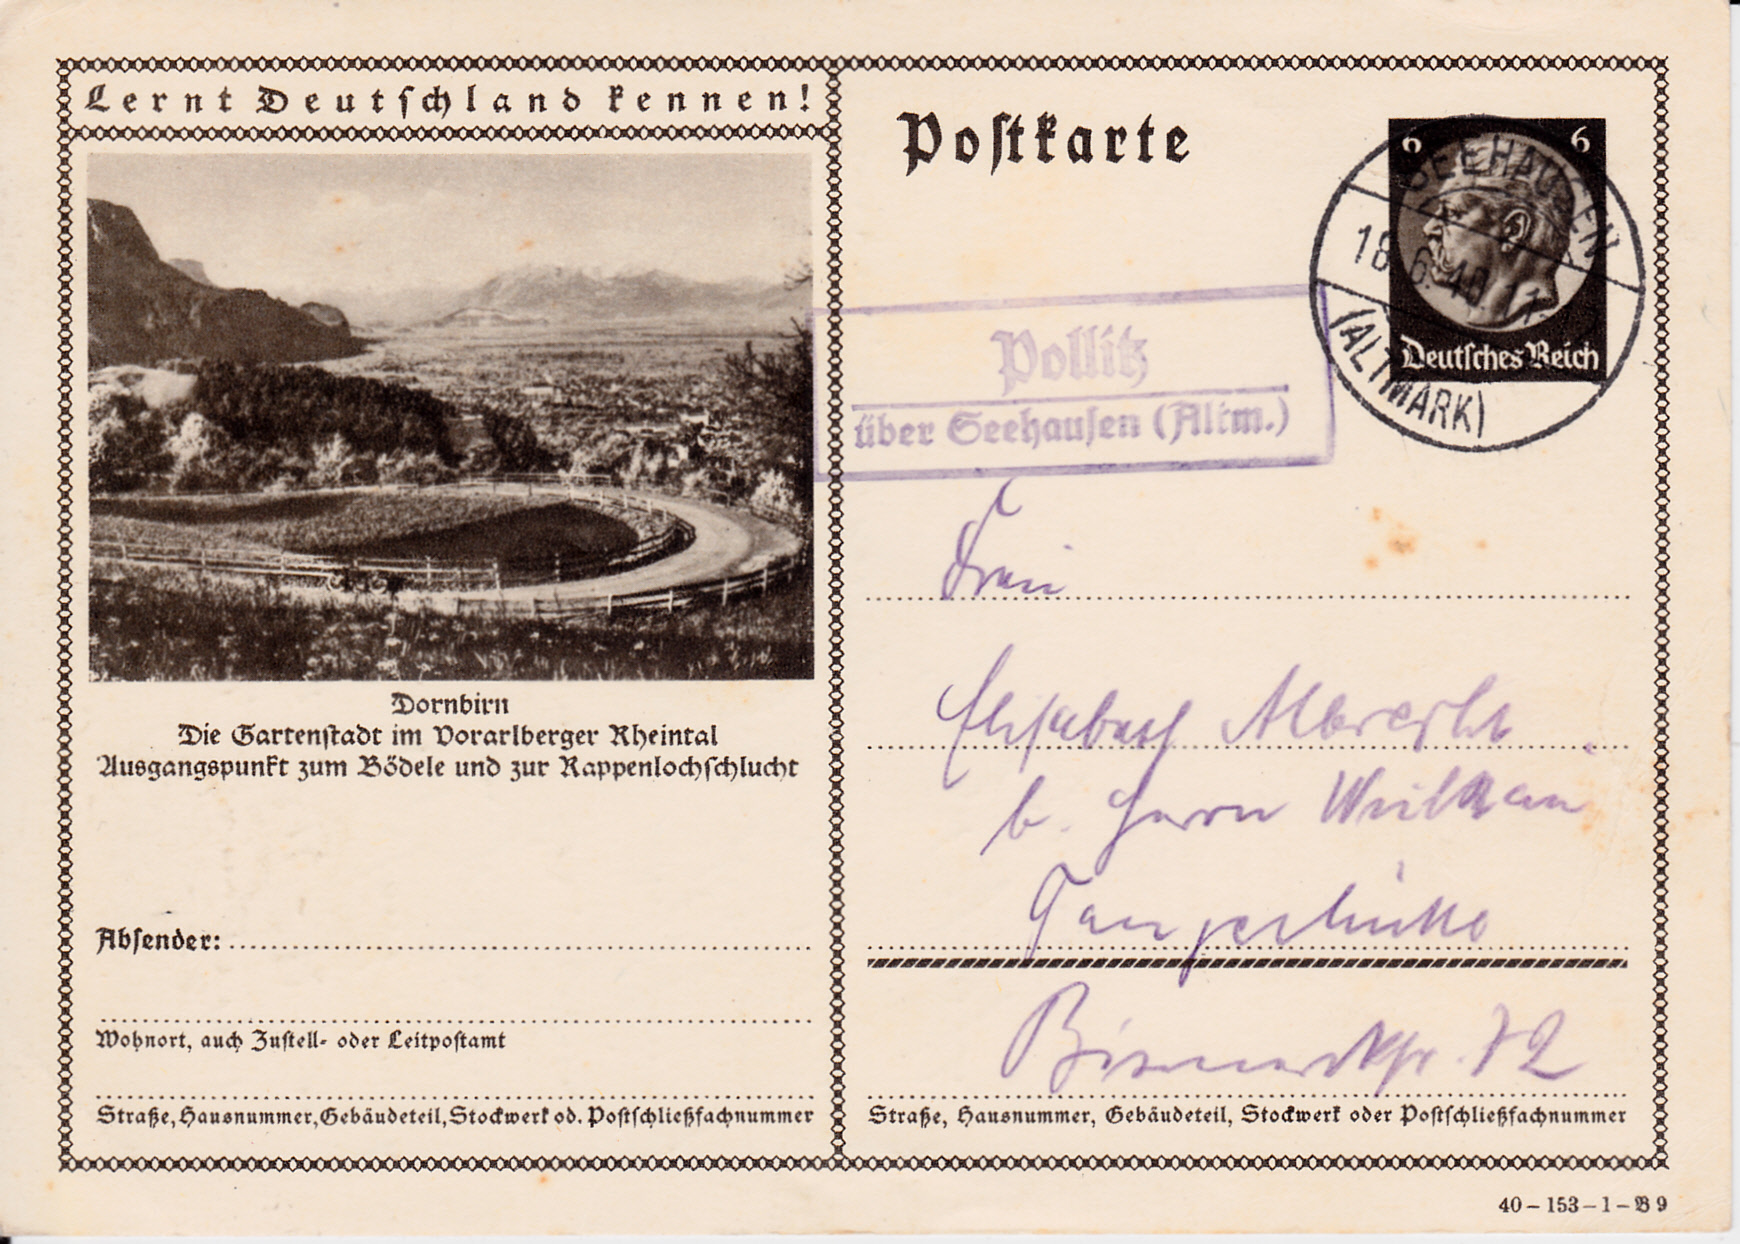 Lernt Deutschland kennen!
Dornbirn
Die Gartenstadt im Vorarlberger Rheintal
Ausgangspunkt zum Bödele und zur Rappenlochschlucht
Absender:
Wohnort, auch Zustell- oder Leitpostamt
Straße, Hausnummer, Gebäudeteil, Stockwerk od. Postschließfachnummer
Postkarte
6 6
Deutsches Reich
SEEHAUSEN
18.6.40
(ALTMARK)
Pollitz
über Seehausen (Altm.)
Frau
Elisabeth Albrecht
b. Herrn
Tangerhütte
Bismarckstr. 72
Straße, Hausnummer, Gebäudeteil, Stockwerk oder Postschließfachnummer
40–153–1–B 9